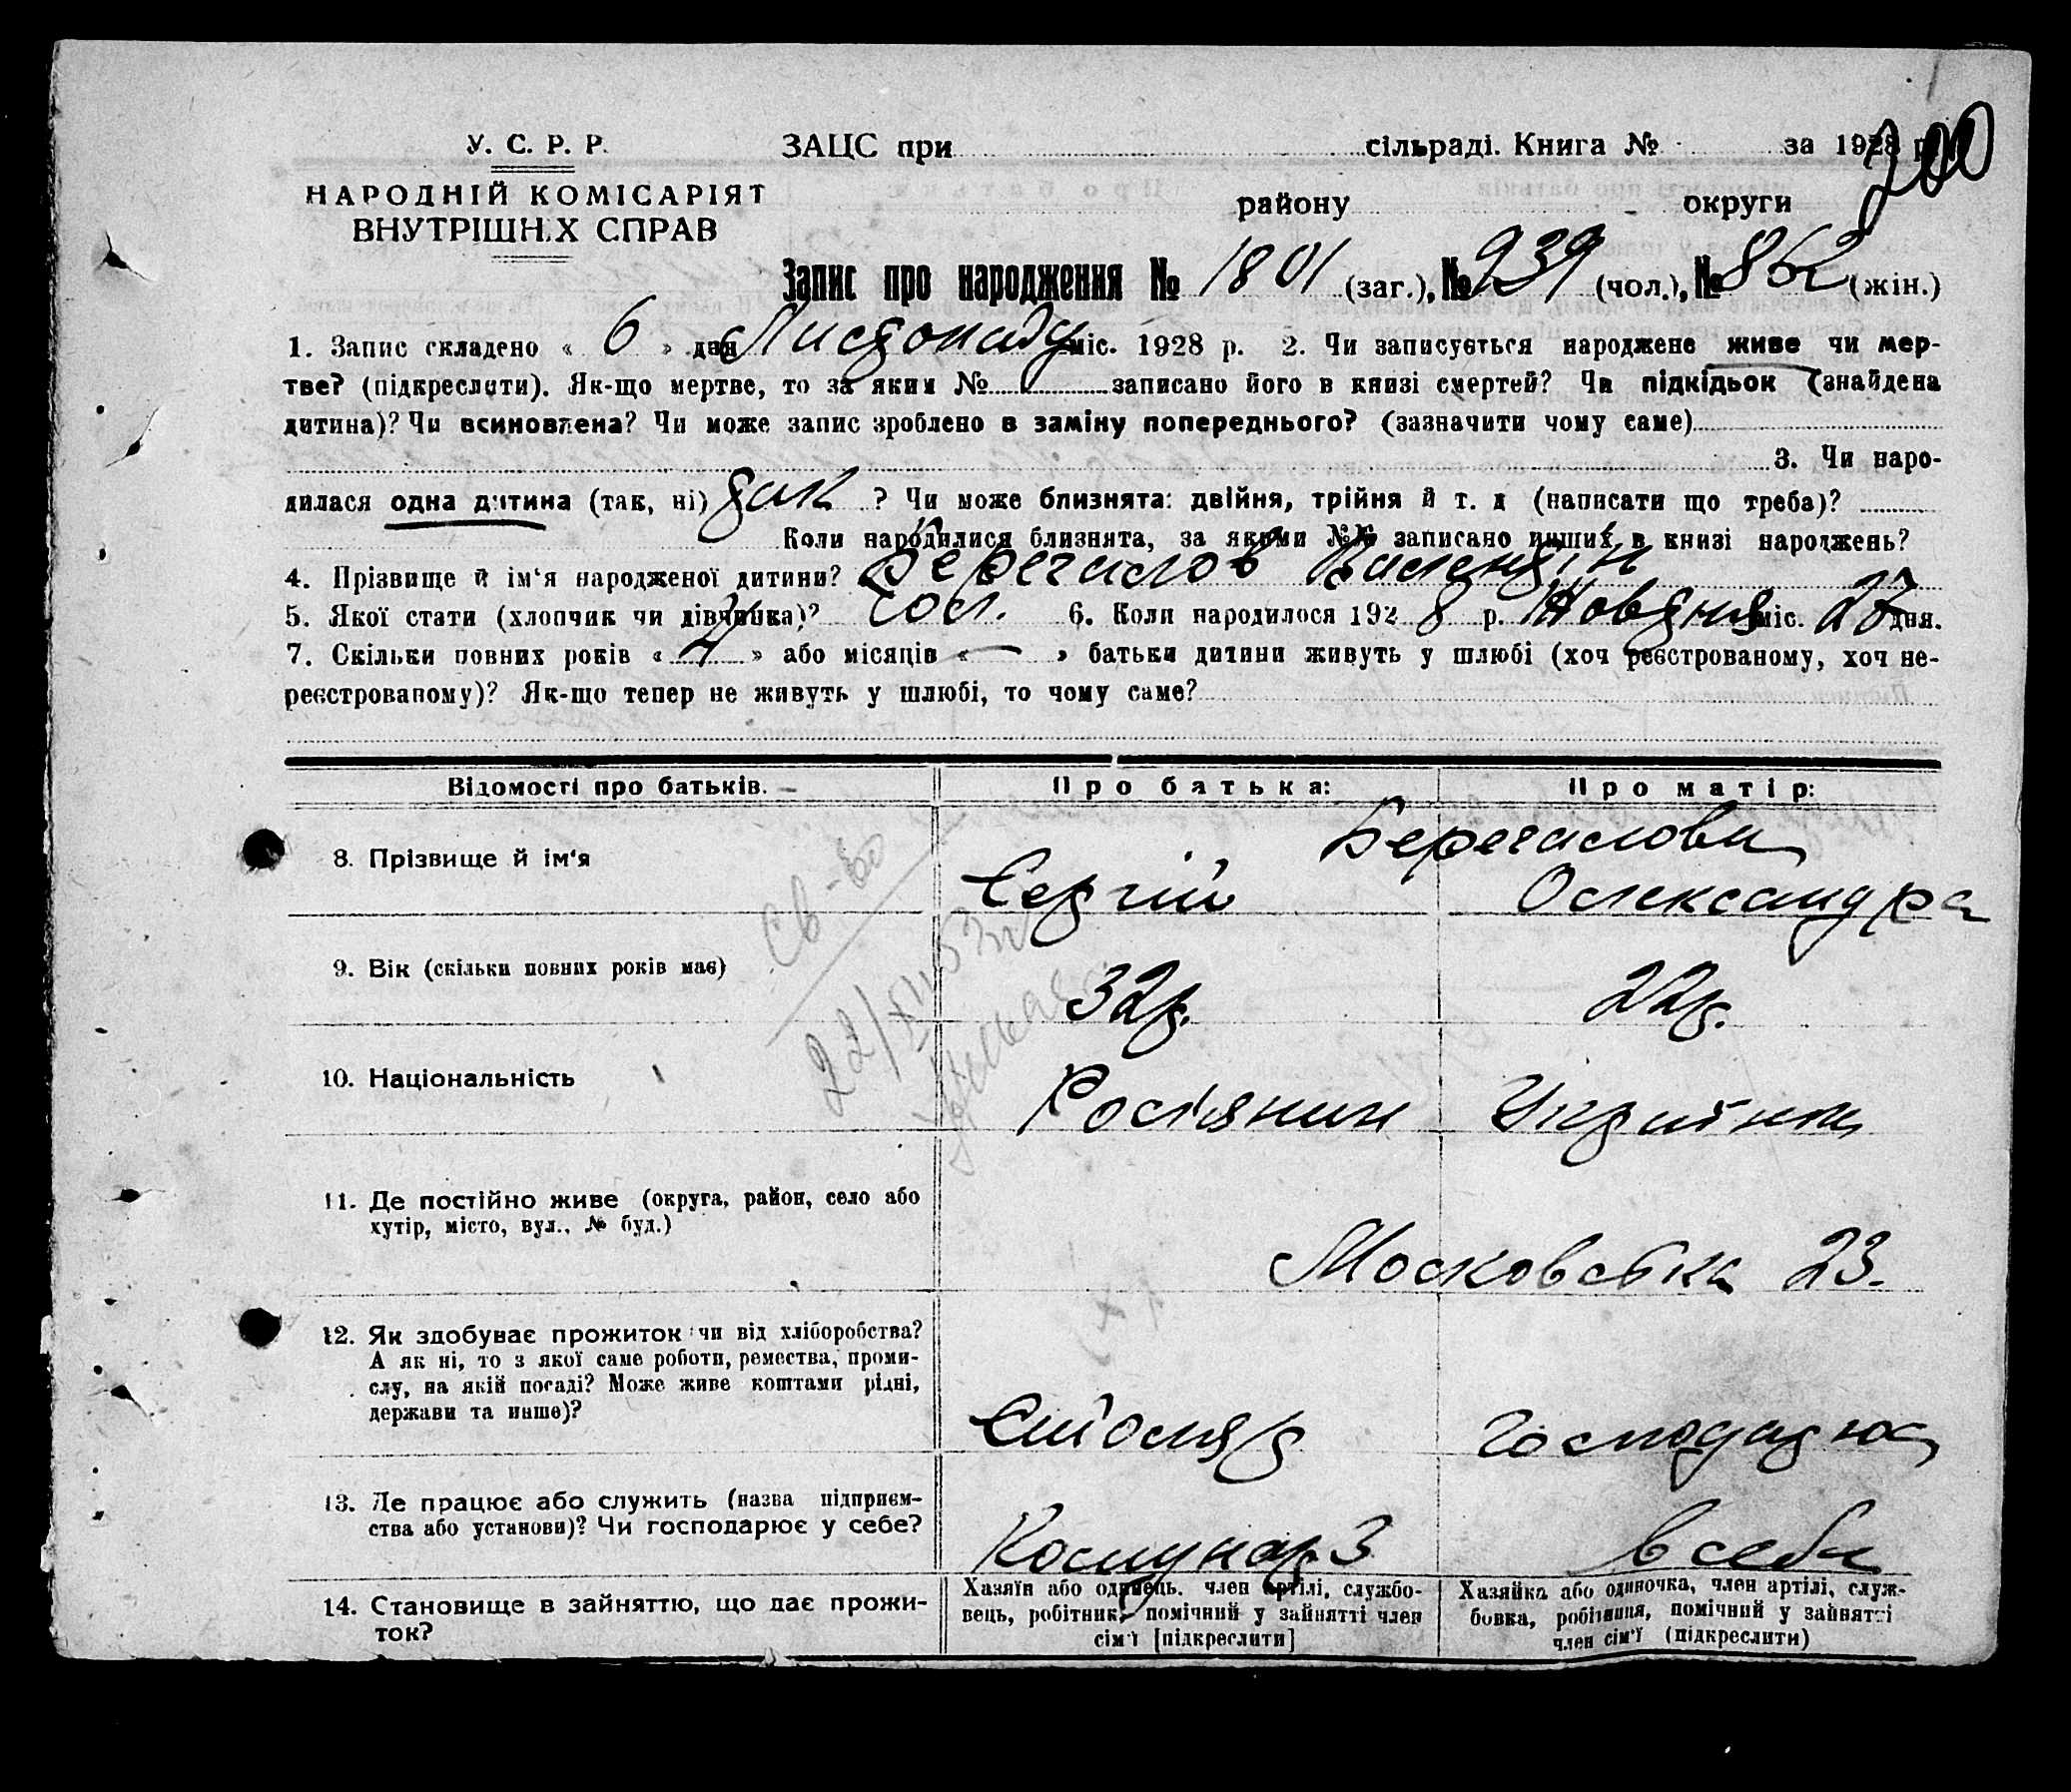 У. С. Р. Р.
НАРОДНІЙ КОМІСАРІЯТ
ВНУТРІШНіХ СПРАВ
ЗАЦС при сільраді. Книга № за 1928 р.
200
району округи
Запис про народження № 1801 (заг.), № 939 (чол.), № 862 (жін.)
1. Запис складено « 6 » дня Листопаду міс. 1928 р. 2. Чи записується народжене живе чи мер-
тве? (підкреслити). Як-що мертве, то за яким № записано його в книзі смертей? Чи підкідьок (знайдена
дитина)? Чи всиновлена? Чи може запис зроблено в заміну попереднього? (зазначити чому саме)
3. Чи наро-
дилася одна дитина (так, ні) так ? Чи може близнята: двійня, трійня й т. д (написати що треба)?
Коли народилися близнята, за якими №№ записано инших в книзі народжень?
4. Прізвище й ім‘я народженої дитини? Берегчалов Валентін
5. Якої стати (хлопчик чи дівчинка)? чол. 6. Коли народилося 1928 р. Жовтня міс. 27 дня.
7. Скільки повних років « » або місяців « — » батьки дитини живуть у шлюбі (хоч реєстрованому, хоч не-
реєстрованому)? Як-що тепер не живуть у шлюбі, то чому саме?
Відомості про батьків. Про батька: Про матір:
8. Прізвище й ім‘я
Сергій Олександра
9. Вік (скільки повних років має) 32р. 22р.
10. Національність Росіянин Українка
11. Де постійно живе (округа, район, село або
хутір, місто, вул., № буд.)
Московська 23.
12. Як здобуває прожиток чи від хліборобства?
А як ні, то з якої саме роботи, ремества, проми-
слу, на якій посаді? Може живе коштами рідні,
держави та инше)?
Столяр Господарює
13. Де працює або служить (назва підприєм-
ства або установи)? Чи господарює у себе?
Комунар 3 в себе
14. Становище в зайняттю, що дає прожи-
ток?
Хазяїн або одинець, член артілі, службо-
вець, робітник, помічний у зайнятті член
сім‘ї [підкреслити]
Хазяйка або одиночка, член артілі, служ-
бовка, робітниця, помічний у зайнятті
член сім‘ї (підкреслити)